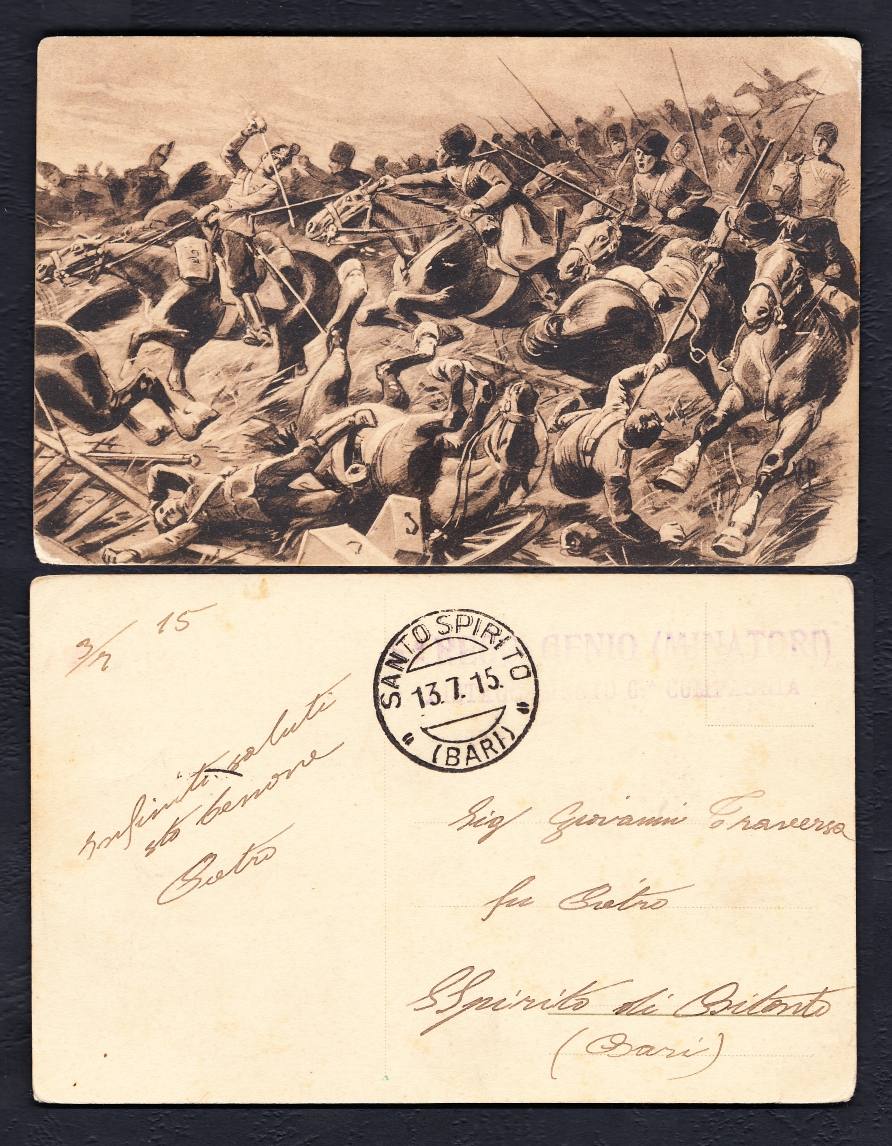 3/7 15
Infiniti saluti
sto benone
Pietro
SANTO SPIRITO
13.7.15.
(BARI)
GENIO (MINATORI)
COMPAGNIA
Sig Giovanni Traversa
fu Pietro
S Spirito di Bitonto
(Bari)